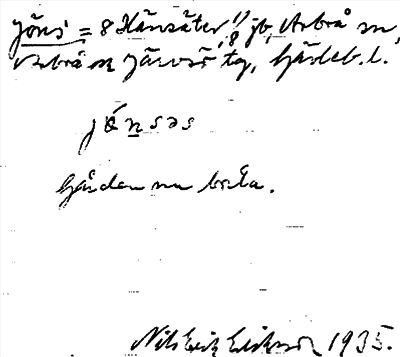 Jöns = 8 Hänsäter 1/8 jb, Arbrå sn,
Arbrå o Järvsö tg, Hälsingl. l.
jö́nsəs
Gården nu borta.
Nils Erik Eriksson 1935.